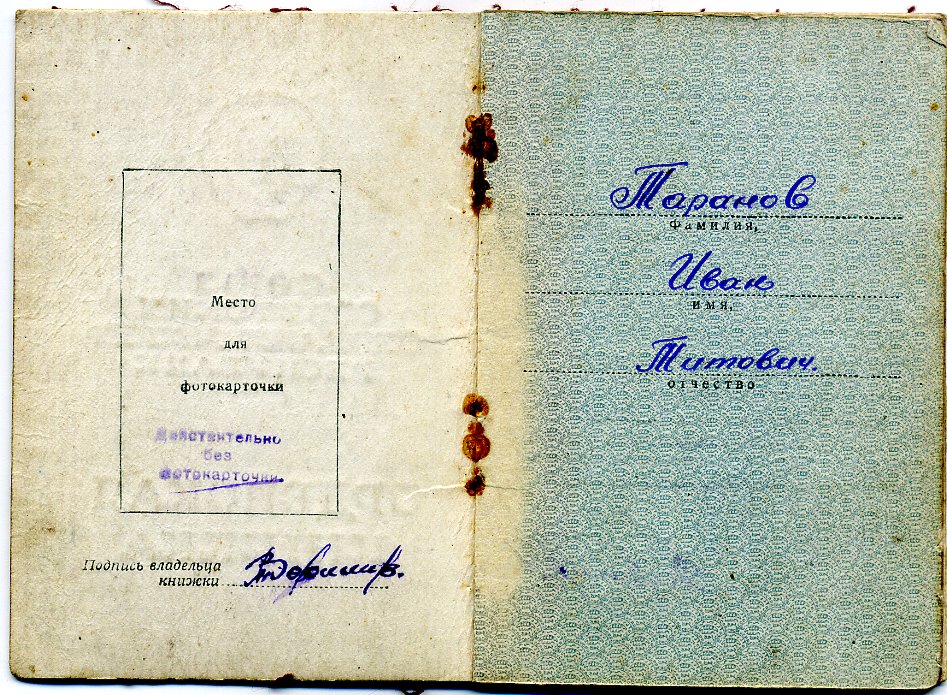 Место
для
фотокарточки
Действительно
без
фотокарточки.
Подпись владельца
книжки
Таранов
фамилия,
Иван
имя,
Титович.
отчество